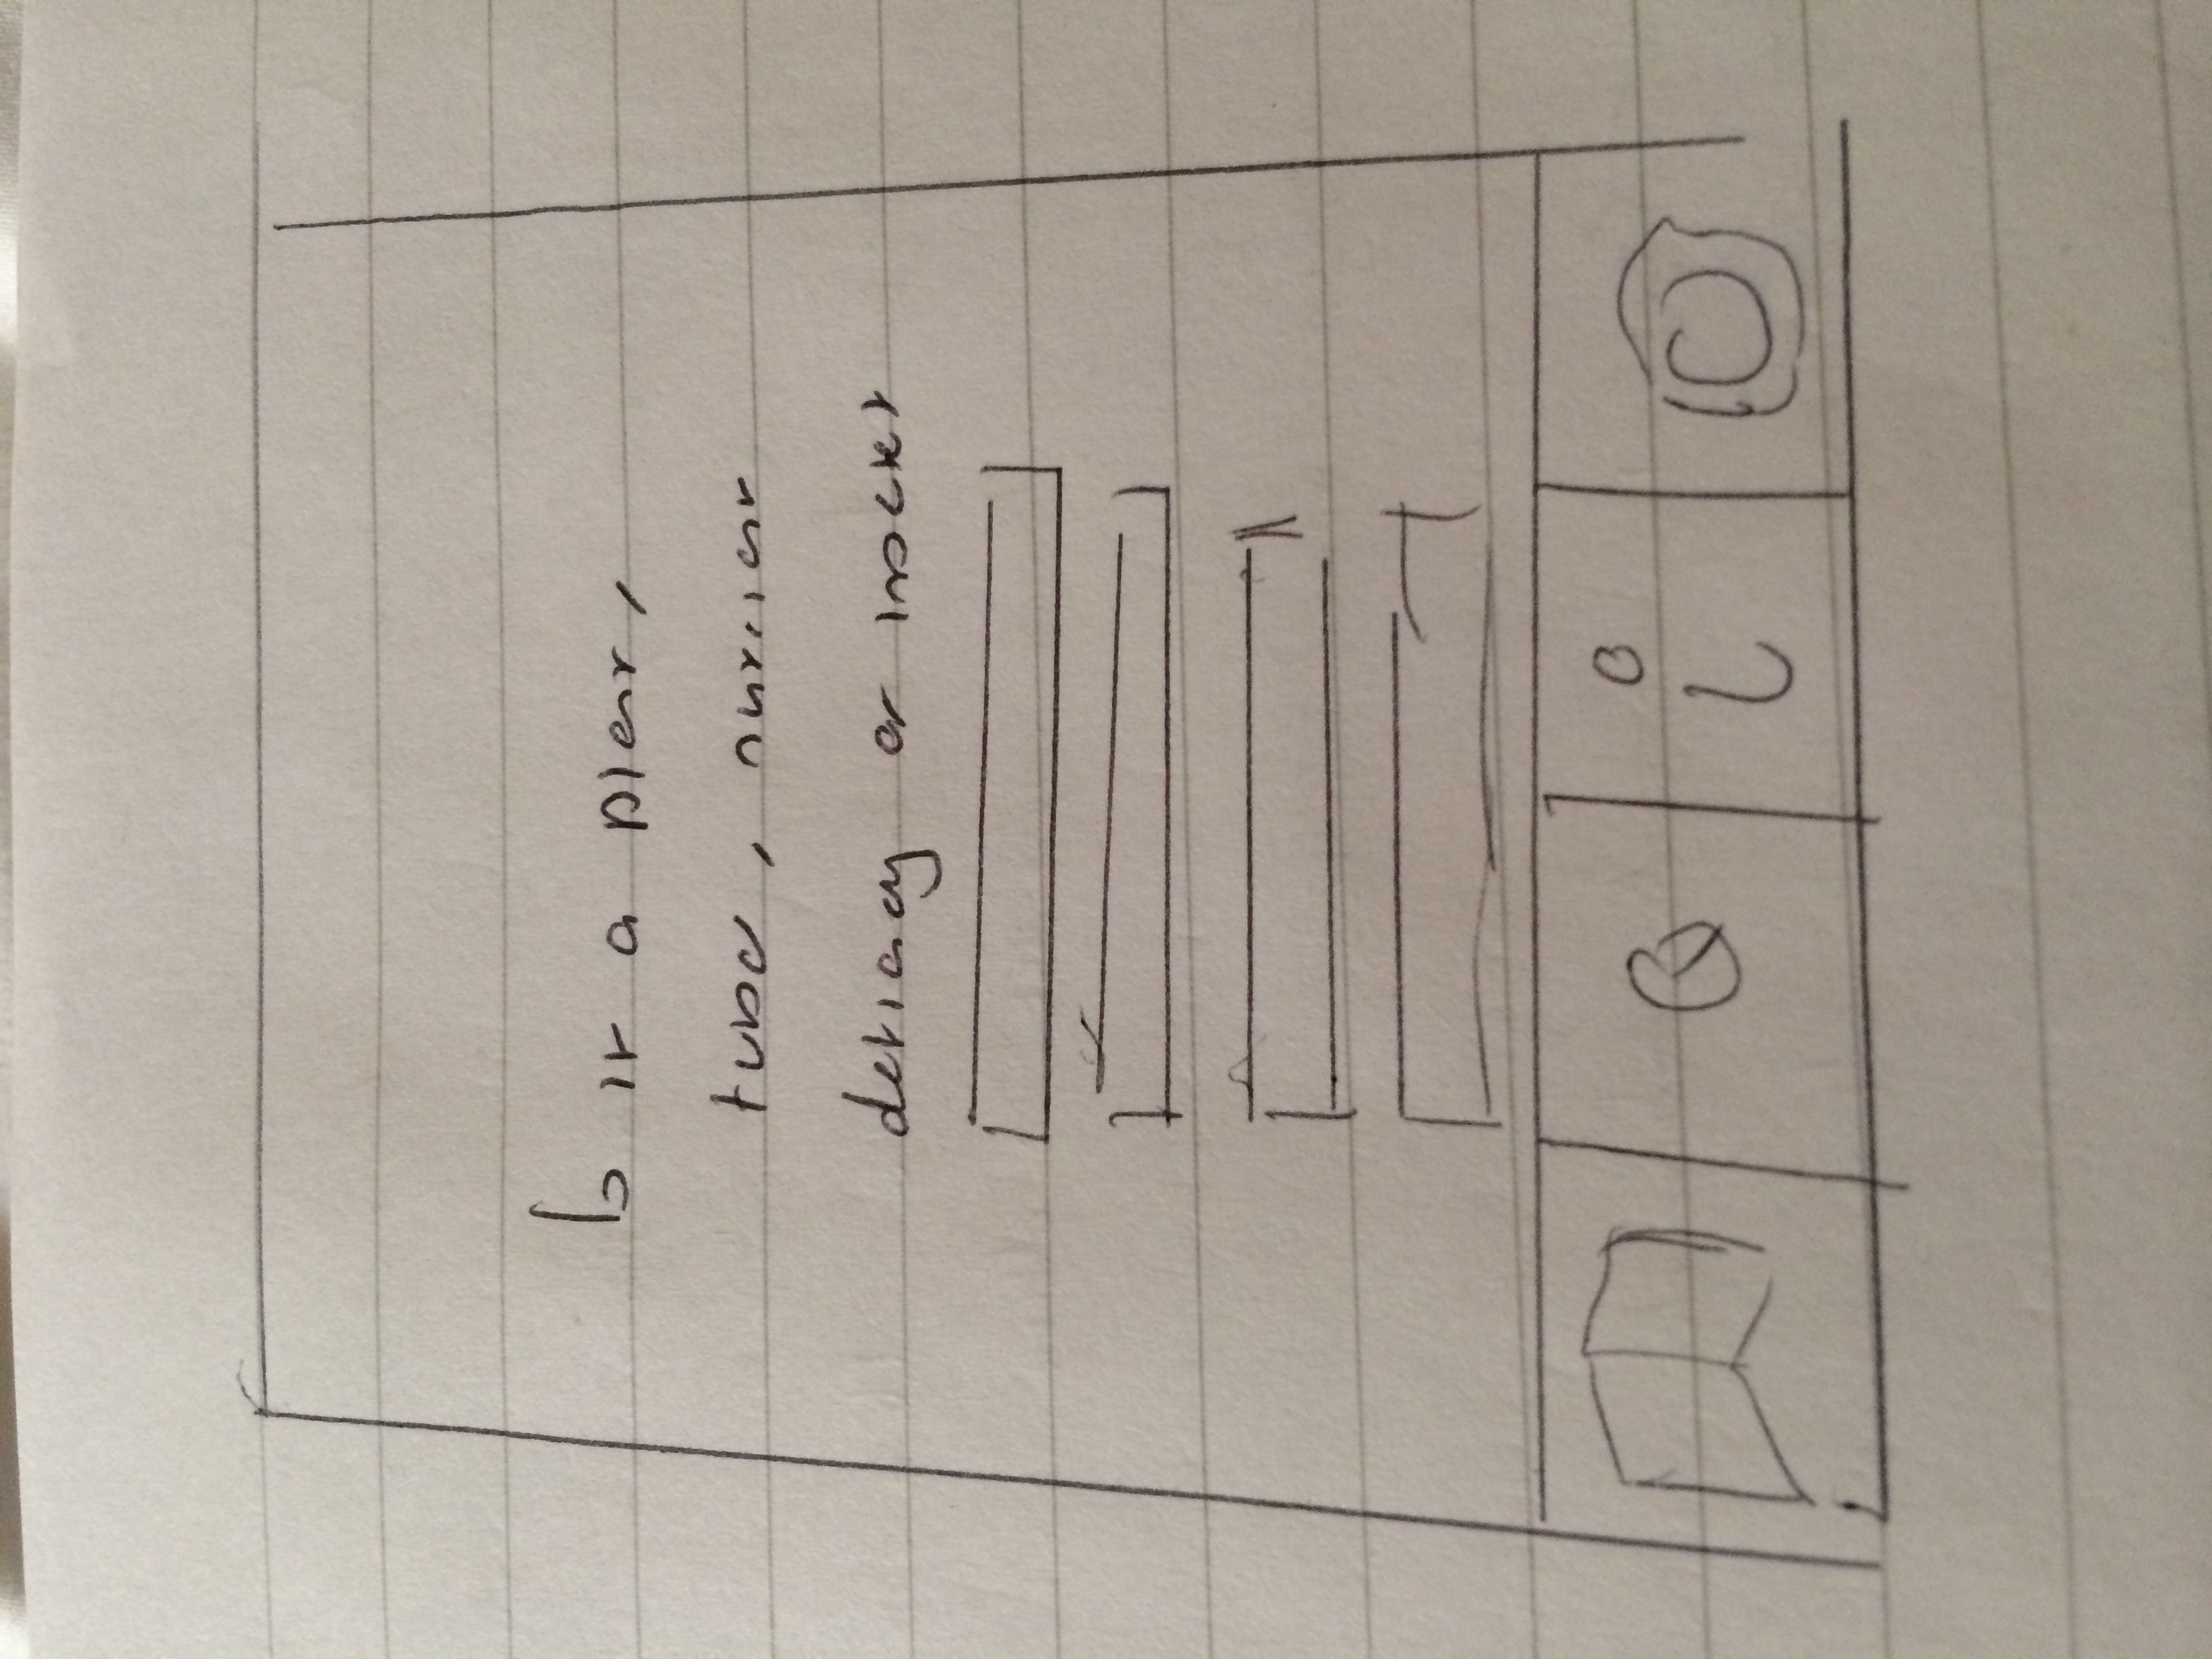 Is it a plant,
tuber, nutrient
deficiency or insect
i